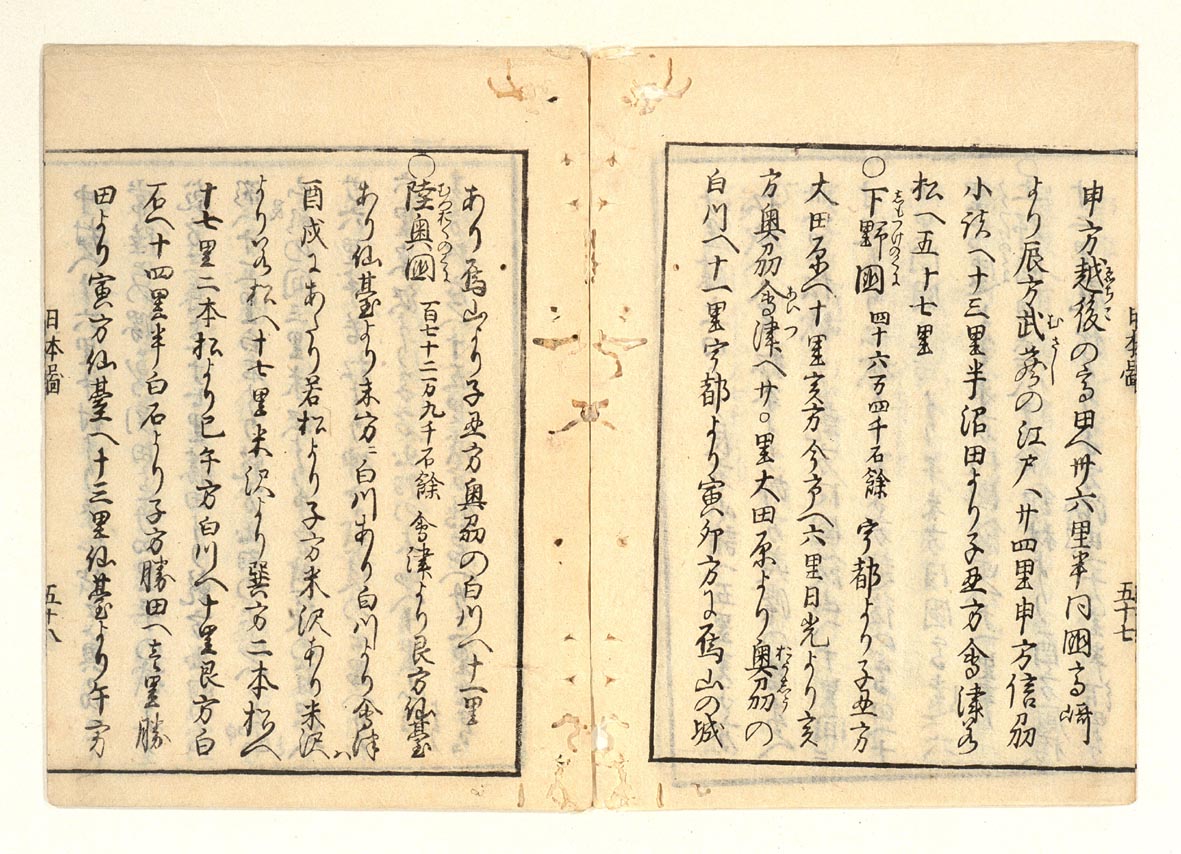 申方越後の高田へ卅六里半同國高崎
より辰方武蔵の江戸へ廿四里申方信刕
小諸へ十三里半沼田より子丑方會津若
松へ五十七里
○下野國 四十六万四千石餘 宇都より子丑方
大田原へ十里亥方今市へ六里日光より亥
方奥刕會津へ廿○里大田原より奥刕の
白川へ十一里宇都より寅卯方ニ烏山の城
日本圖 五十七
あり烏山より子丑方奥刕の白川へ十一里
○陸奥國 百七十二万九千石餘 會津より艮方仙臺
あり仙臺より未方ニ白川あり白川より會津ハ
酉戌にあたり若松より子方米沢あり米沢
より若松へ十七里米沢より巽方二本松へ
十七里二本松より巳午方白川へ十里艮方白
石へ十四里半白石より子方勝田へ 里勝
田より寅方仙臺へ十三里仙臺より午方
日本圖 五十八